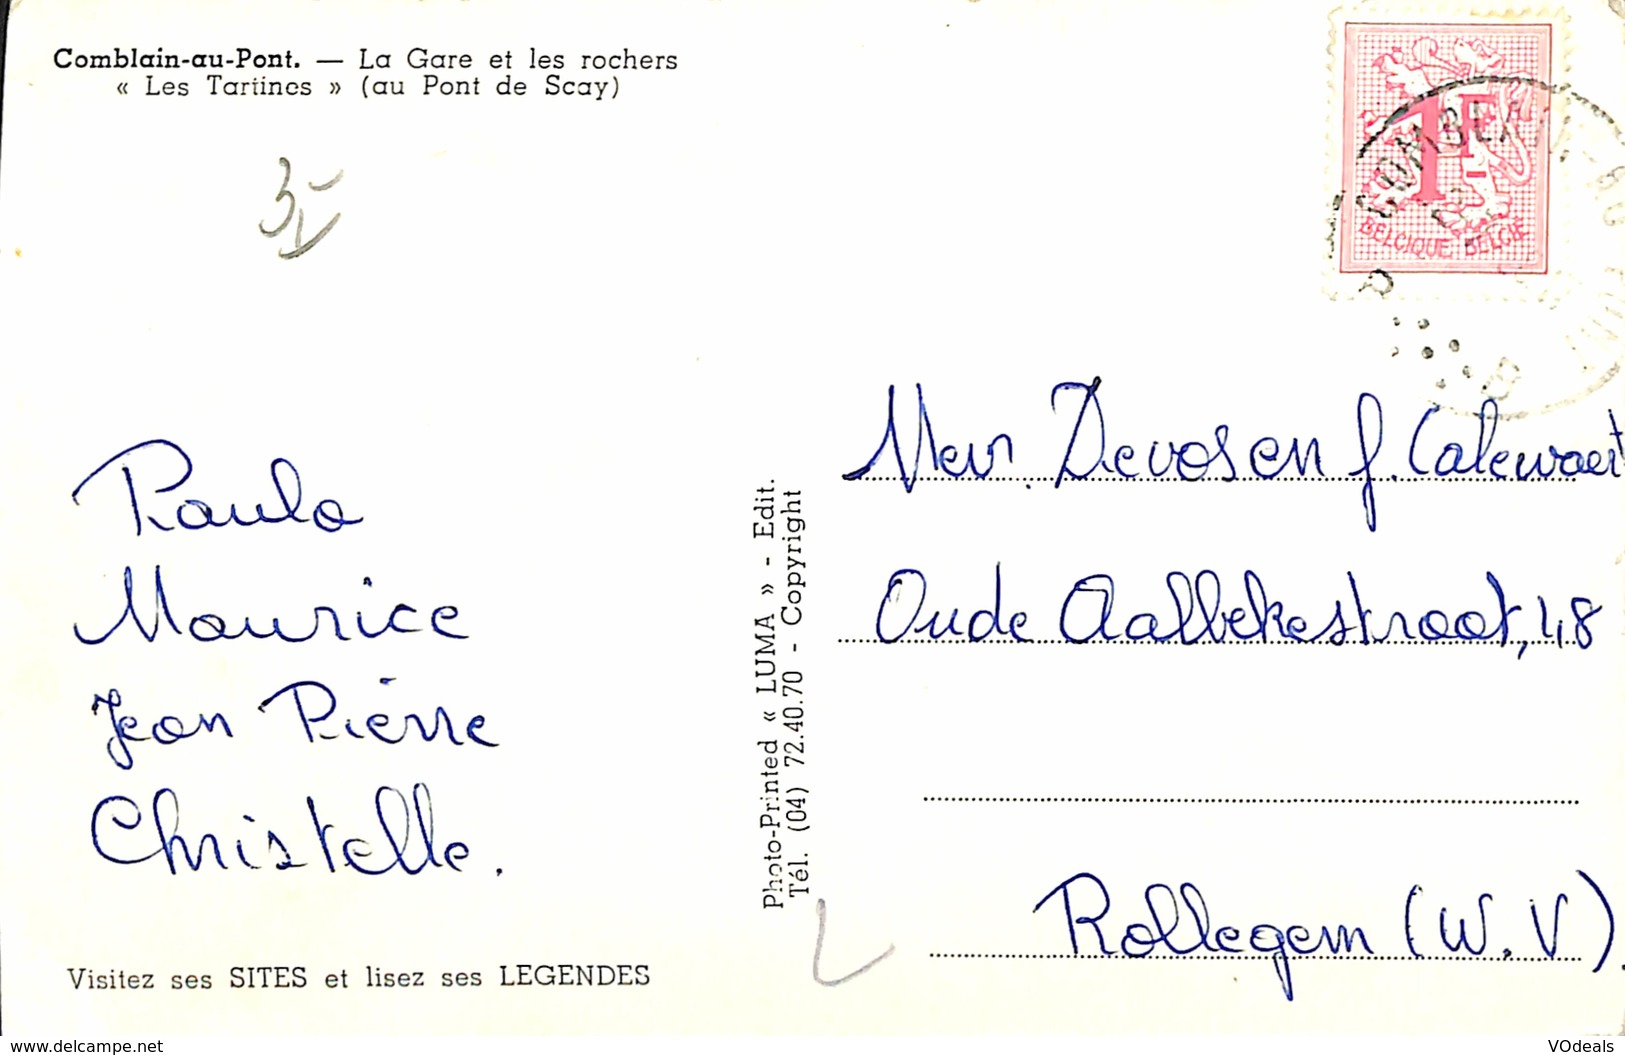 Comblain-au-Pont. — La Gare et les rochers
« Les Tartines » (au Pont de Scay)
3
1F
BELGIQUE BELGIË
Paula
Maurice
Jean Pierre
Christelle.
Visitez ses SITES et lisez ses LEGENDES
Photo-Printed « LUMA » - Edit.
Tél. (04) 72.40.70 - Copyright
Mevr. Devos en f. Calewaert
Oude Aalbekestraat, 48
Rollegem (W.V).
www.delcampe.net
VOdeals